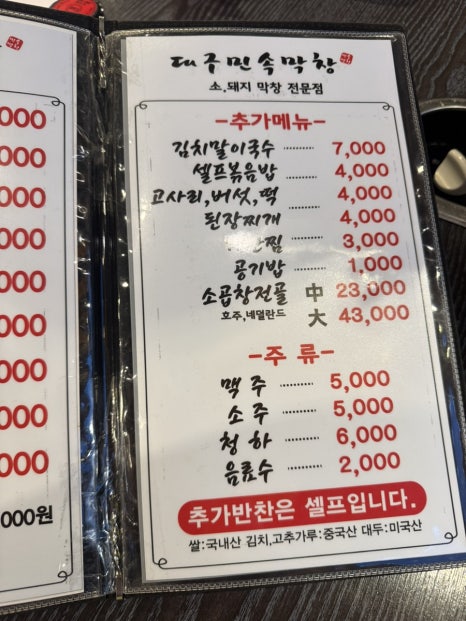 000
000
000
000
000
000
000
000
000
000원
대구민속막창
소,돼지 막창 전문점
-추가메뉴-
김치말이국수 ········ 7,000
셀프볶음밥 ········ 4,000
고사리,버섯,떡 4,000
된장찌개 4,000
찜 3,000
공기밥 1,000
소곱창전골 中 23,000
호주,네덜란드 大 43,000
-주 류-
맥 주 ········ 5,000
소 주 ········ 5,000
청 하 ········ 6,000
음료수 ········ 2,000
추가반찬은 셀프입니다.
쌀:국내산 김치,고추가루:중국산 대두:미국산